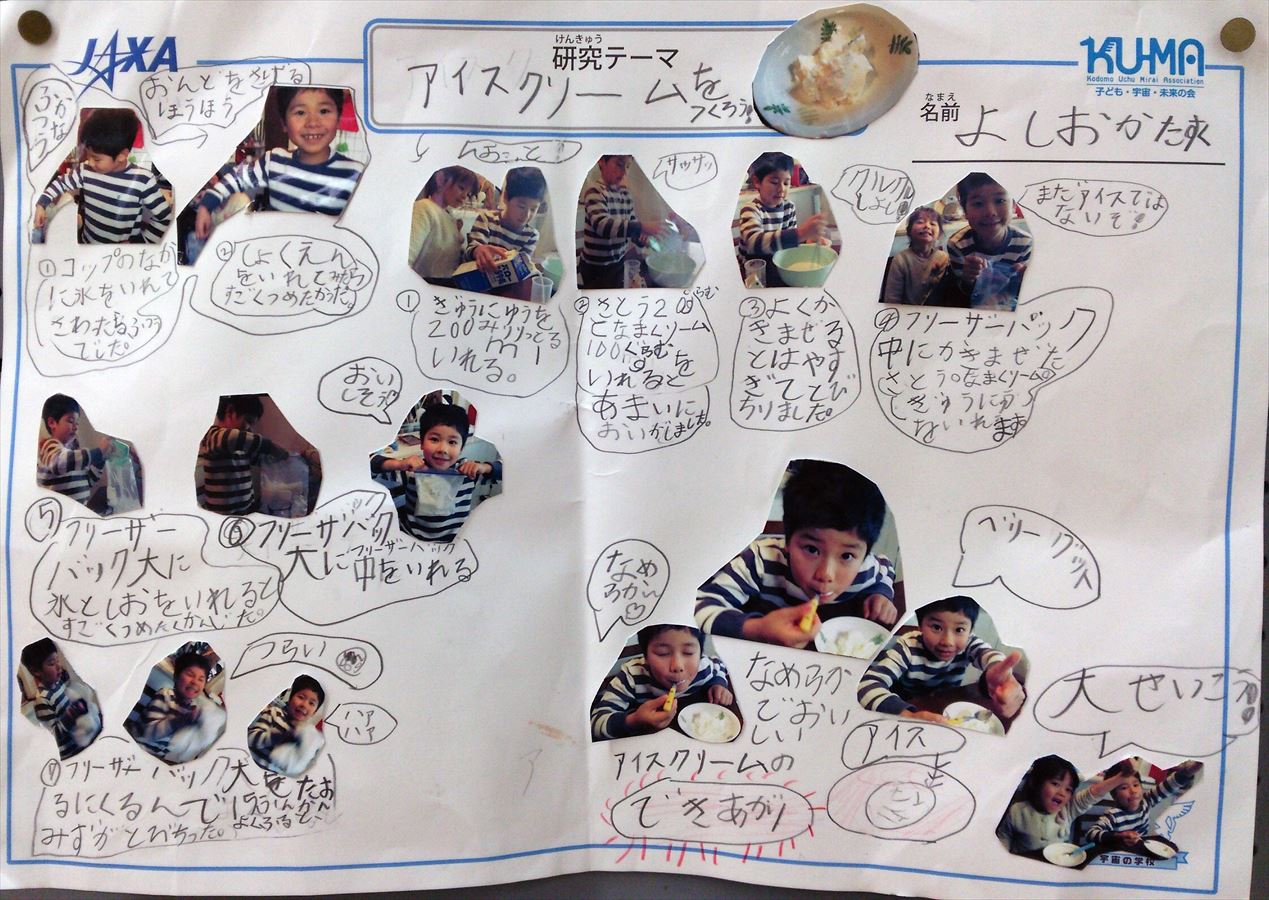 JAXA
けんきゅう
研究テーマ
アイスクリームを
つくろう!
KU-MA
Kodomo Uchu Mirai Association
子ども・宇宙・未来の会
なまえ
名前
よしおか
ふつう
かな
おんどをさげる
ほうほう
①コップのなか
に氷をいれて
さわったら
ふつう
でした。
②しょくえん
をいれてみたら
すごくつめたかった。
①ぎゅうにゅうを
200みりりっとる
ml
いれる。
サッサッ
②さとう20
ぐらむ
となまくりーむ
100ぐらむ
を
いれると
あまいに
おいがしました。
クルクル
しよし!
③よくか
きまぜる
とはやす
ぎてとび
ちりました。
まだアイスでは
ないぞ!
④フリーザーパック
中にかきまぜた
さとう。なまくりーむ。
ぎゅうにゅう
をいれます
おいしそう
⑤フリーザー
バック大に
氷としおをいれると
すごくつめたくかんじた。
⑥フリーザバック
大に
フリーザーバック
中をいれる
つらい
ハァ
ハァ
⑦フリーザーバック大をたお
るにくるんで
よくふると、
みずがとびちった。
なめ
らか~♡
ベリーグッス
なめらか
でおい
しい
アイスクリームの
できあがり
アイス
大せいこう!
宇宙の学校